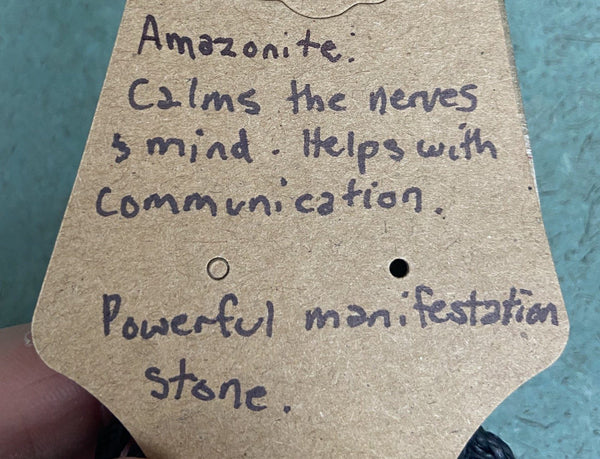 Amazonite:
Calms the nerves
& mind. Helps with
communication.
Powerful manifestation
stone.